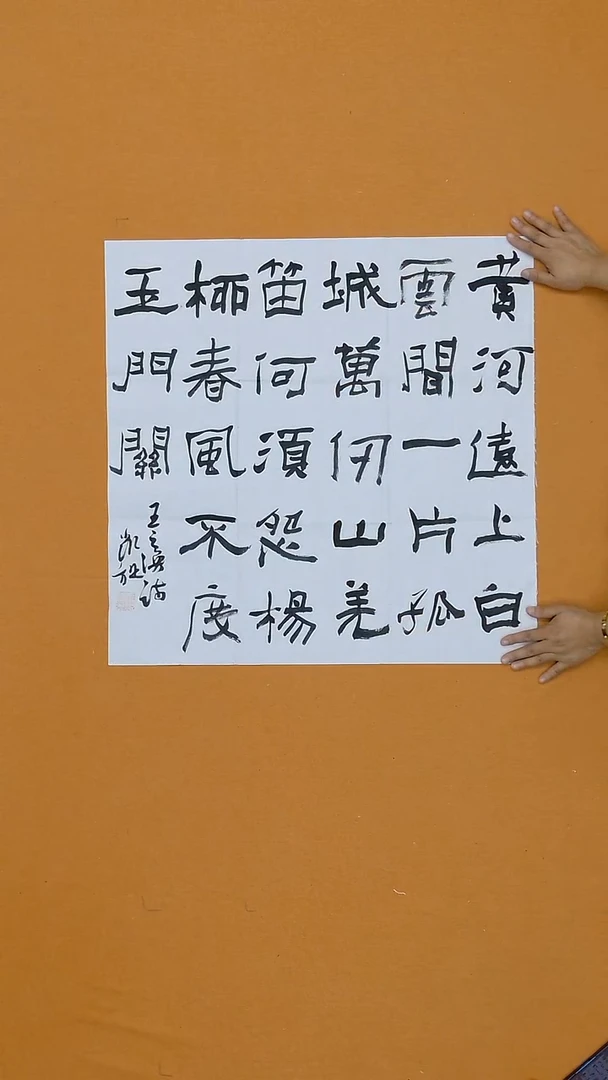 黄河遠上白
雲間一片孤
城萬仞山羌
笛何須怨楊
柳春風不度
玉門關
王之渙詩